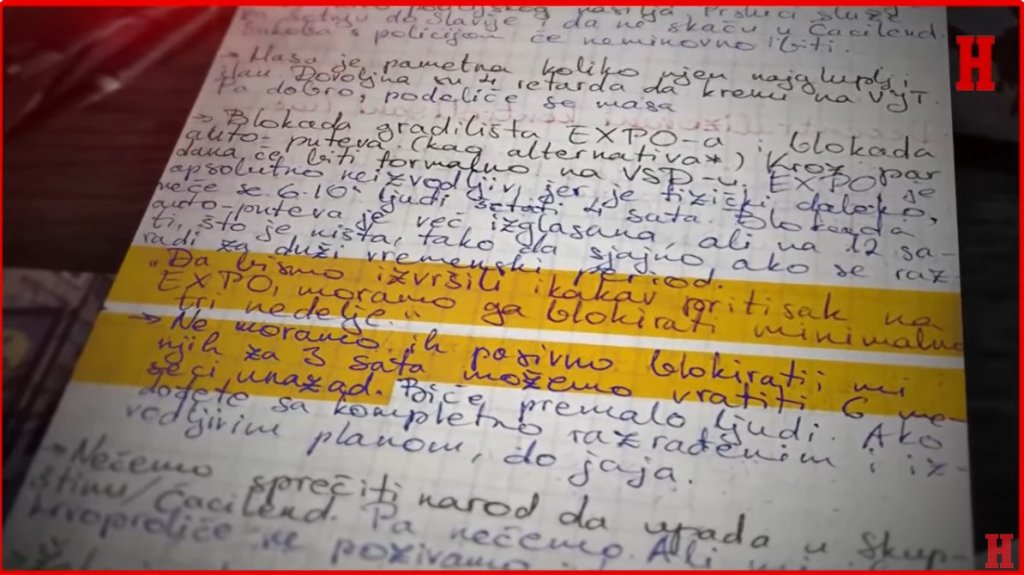 policijskog nasilja
do Slavije i da ne skaču u Ćacilend.
Sukoba s policijom će neminovno biti.
→ Masa je pametna koliko njen najgluplji
član. Dovoljna su 4 retarda da krenu na VJT.
Pa dobro, podeliće se masa
→ Blokada gradilišta EXPO-a i blokada
auto-puteva (kao alternativa*) Kroz par
dana će biti formalno na VSD-u. EXPO je
apsolutno neizvodljiv, jer je fizički daleko,
neće se 6.10⁴ ljudi šetati 4 sata. Blokada
auto-puteva je već izglasana, ali na 12 sa-
ti, što je ništa, tako da sjajno ako se raz-
radi za duži vremenski period.
"Da bismo izvršili ikakav pritisak na
EXPO, moramo ga blokirati minimalno
tri nedelje."
→ Ne moramo ih pasivno blokirati; mi
njih za 3 sata možemo vratiti 6 me-
seci unazad. Biće premalo ljudi. Ako
dođete sa kompletno razrađenim i iz-
vodljivim planom, do jaja.
→ Nećemo sprečiti narod da upada u Skup-
štinu/Ćacilend. Pa nećemo. Ali
krvoproliće ne pozivamo
H
H